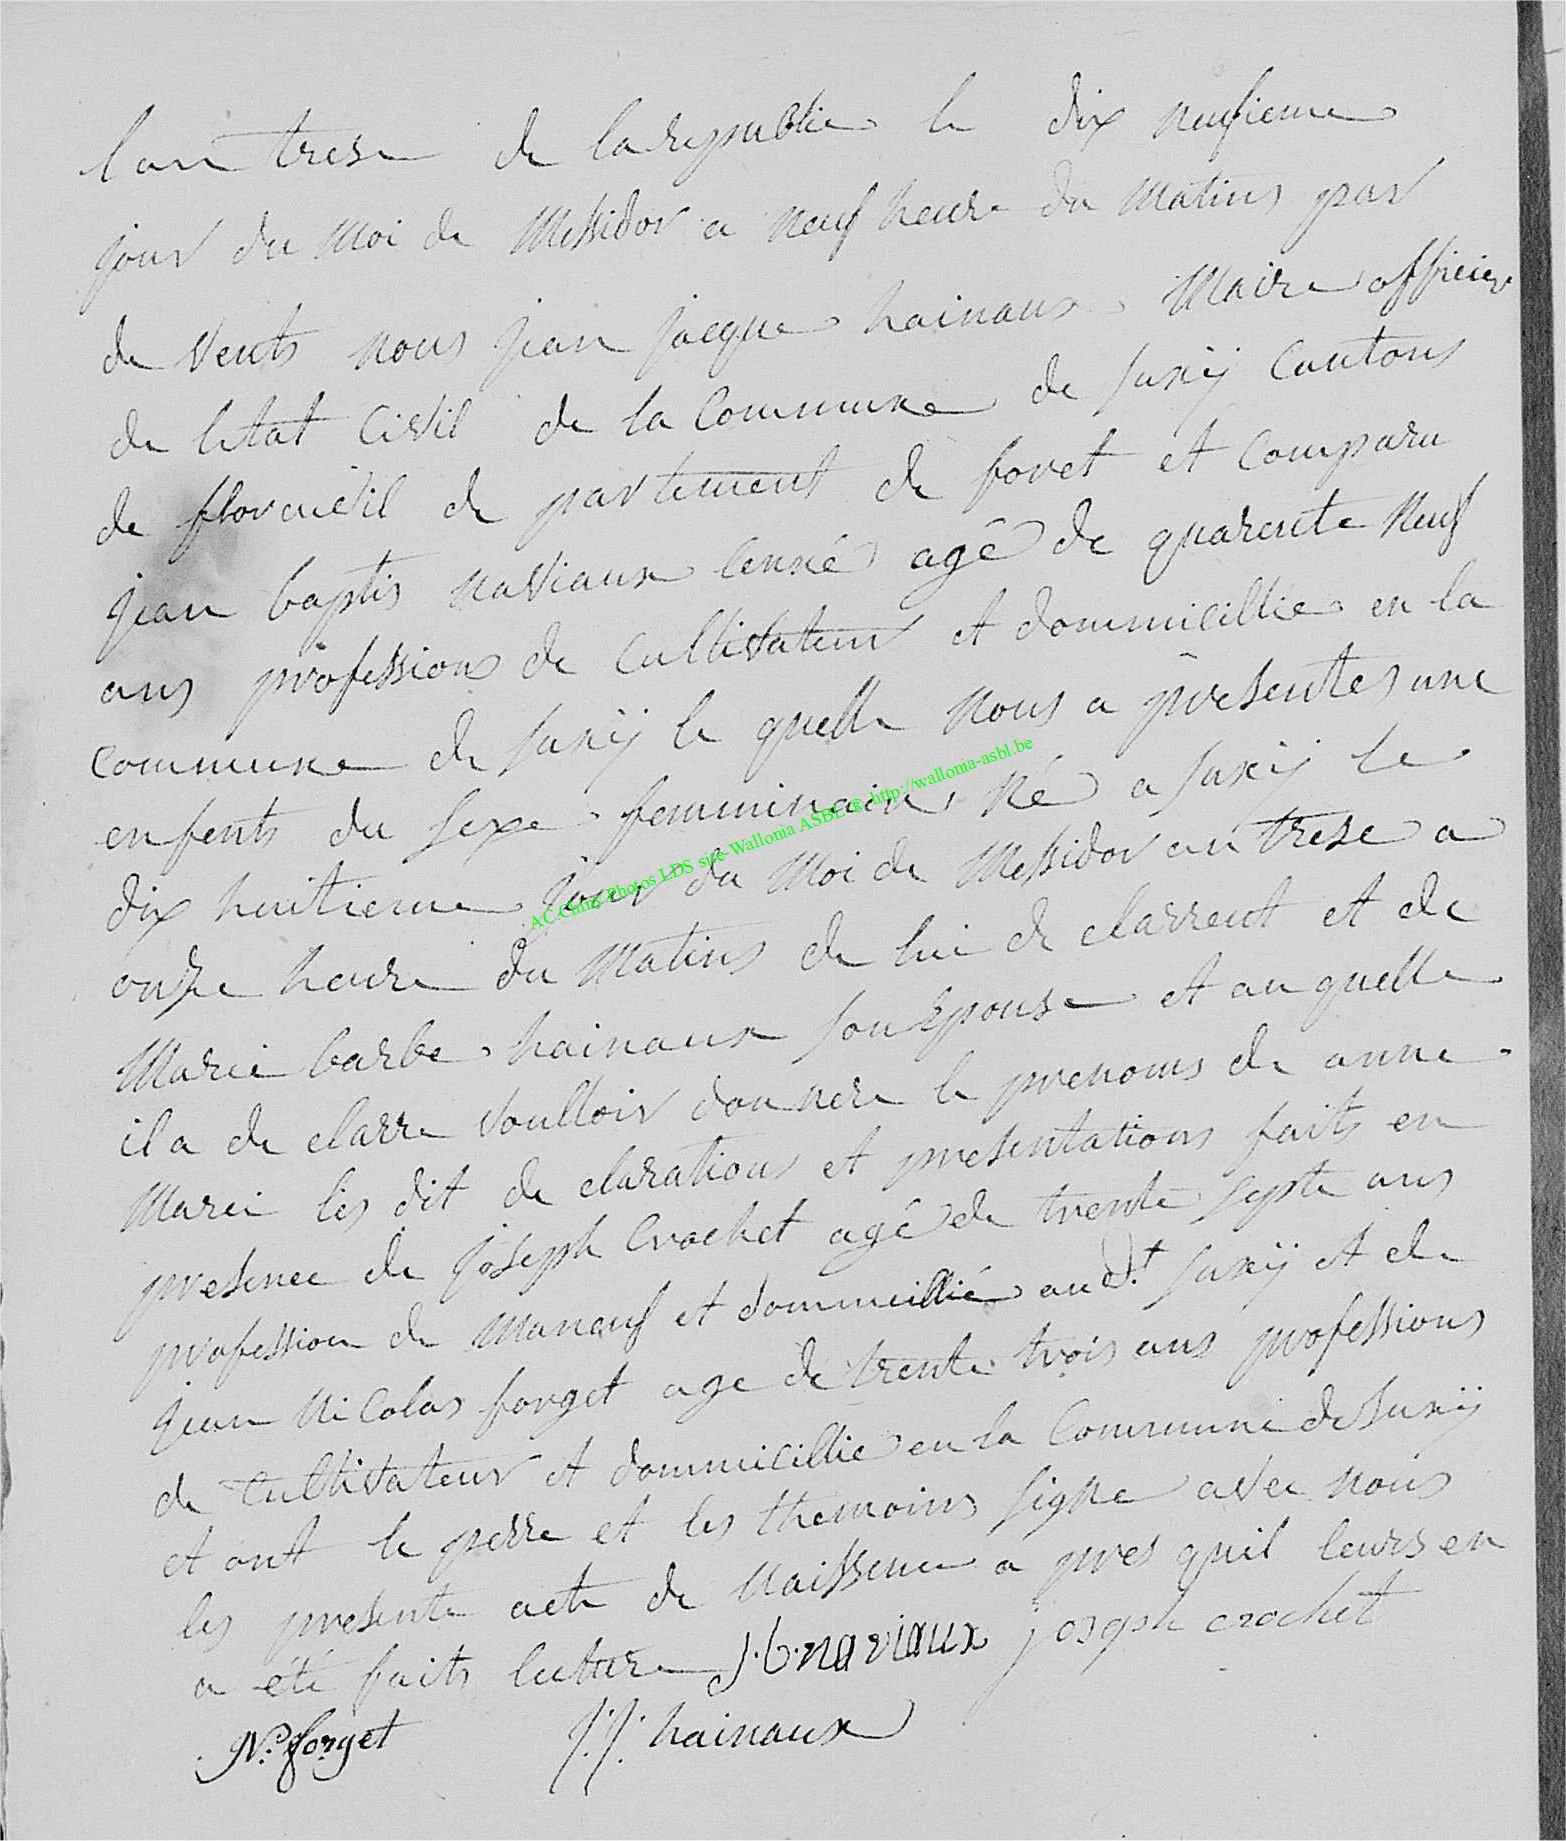 lan trese de la republice le dix neufieme
jour du moi de Messidor a neuf heure du matins par
de vents nous jean jacque hainaux Maire officier
de letat Civil de la Commune de suxÿ Cantons
de florenvil de partement de foret et Comparu
jean baptis naviaux lenné agé de quarente neuf
ans professions de Cultivateur et dommicillie en la
Commune de suxÿ le quelle nous a présentes une
enfents du sexe femminain né a suxÿ le
dix huitieme jour du Moi de Messidor an trese a
onze heure du Matins de lui de clarrent et de
Marie barbe hainaux son Epouse et au quelle
il a de clarre voulloir donnere le prenoms de anne
Marie les dit de clarations et presentations faits en
presence de joseph Crochet agé de trente septe ans
profession de Maneuf et dommicillié aud.t suxÿ et de
jean Nicolas forget age de trente trois ans professions
de Cultivateur et dommicillie en la Commune de suxÿ
et ont le perre et les themoins signe avec nous
les presente acte de Naissence a pres quil leurs en
a été faits lecture J.b. naviaux joseph crochet
N. forget J.J. hainaux
AC Camg Photos LDS site Wallonia ASBL © http://wallonia-asbl.be